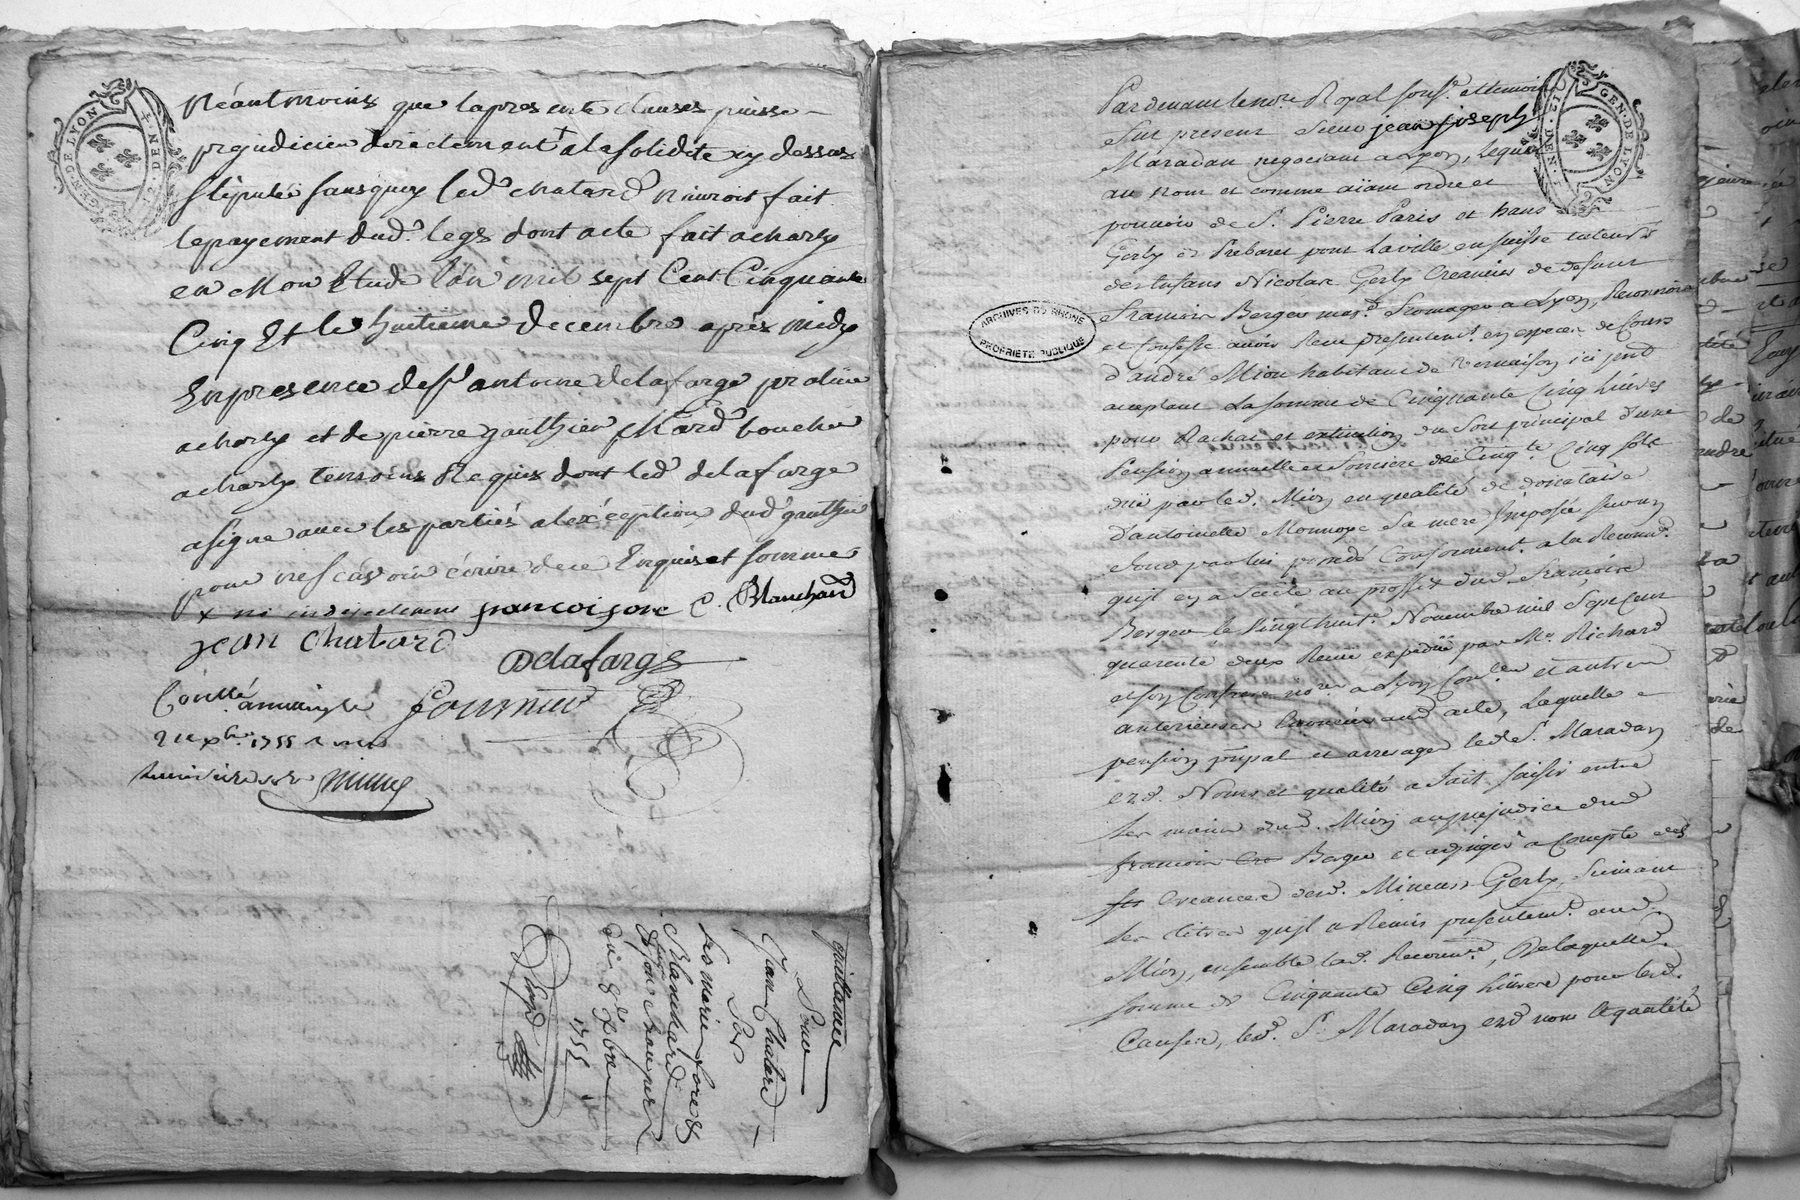 GEN·DE·LYON
12 DEN
Néantmoins que la presente clauses puisse
prejudicier directement + a la solidité cy dessus
stipulée sans quoy led. chatard n'auroit fait
le payement dud. legs dont acte fait a charly
en Mon Etude l'an mil sept Cent Cinquante
Cinq Et le huitieme decembre après midy
En presence de sr. antoine delafarge praticien
a charly et de pierre gauthier Mard. boucher
a charly temoins Requis dont led. delafarge
a signé avec les parties a l'exception dud. gauthier
pour ne scavoir écrire de ce Enquis et sommé
+ ni indirectement francois jore C. Blanchard
jean chatard
A Delafarge
Conllé a
fournier
1755
quittance
Pour
Jean Chatard
Par
Les marie jore &
Blanchard
du 8e. xbre
1755
GEN·DE·LYON
12 DEN
ARCHIVES DU RHONE
PROPRIETE PUBLIQUE
Pardevant le nore. Royal sousé. et temoins
fut present sieur jean joseph
Maradan negociant a Lyon, lequel
au nom et comme aïant ordre et
pouvoir de S. Pierre Paris et hans
Gerly de pour la ville en suisse tuteurs
des Enfans Nicolas Gerly Creancier de defunt
francois Berger mard. fromager a Lyon, Reconnoit
et Confesse avoir Receu presentemt. en especes de Cours
d'andré Mion habitant de Vernaison ici present
acceptant La somme de Cinquante Cinq livres
pour Rachat et extinction du Sort principal d'une
pension annuelle et fonciere de Cinqte. Cinq sols
düe par led. Mion en qualité de donataire
d'antoinette Monnoye Sa mere Imposée sur un
fond par lui possedé Conformemt. a la Reconnce.
qu'il en a passée au proffit dud. francois
Berger le vingt huit Novembre mil sept cent
quarente deux Receu expedié par Me. Richard
et son Confrere nores. a Lyon Conlée. et autres
anterieures enoncées aud. acte, Laquelle
pension ppal et arrerages led. S. Maradan
ezd. Noms et qualités a fait saisir entre
les mains dud. Mion au prejudice dud.
francois Berger et adjuger a Compte des
creances desd. Mineurs Gerly, Suivant
les titres qu'il a Remis presentemt. aud.
Mion, ensemble lad. Reconnce., De laquelle
somme de Cinquante Cinq livres pour lesd.
Causes, led. Sr. Maradan ezd. nom & qualité